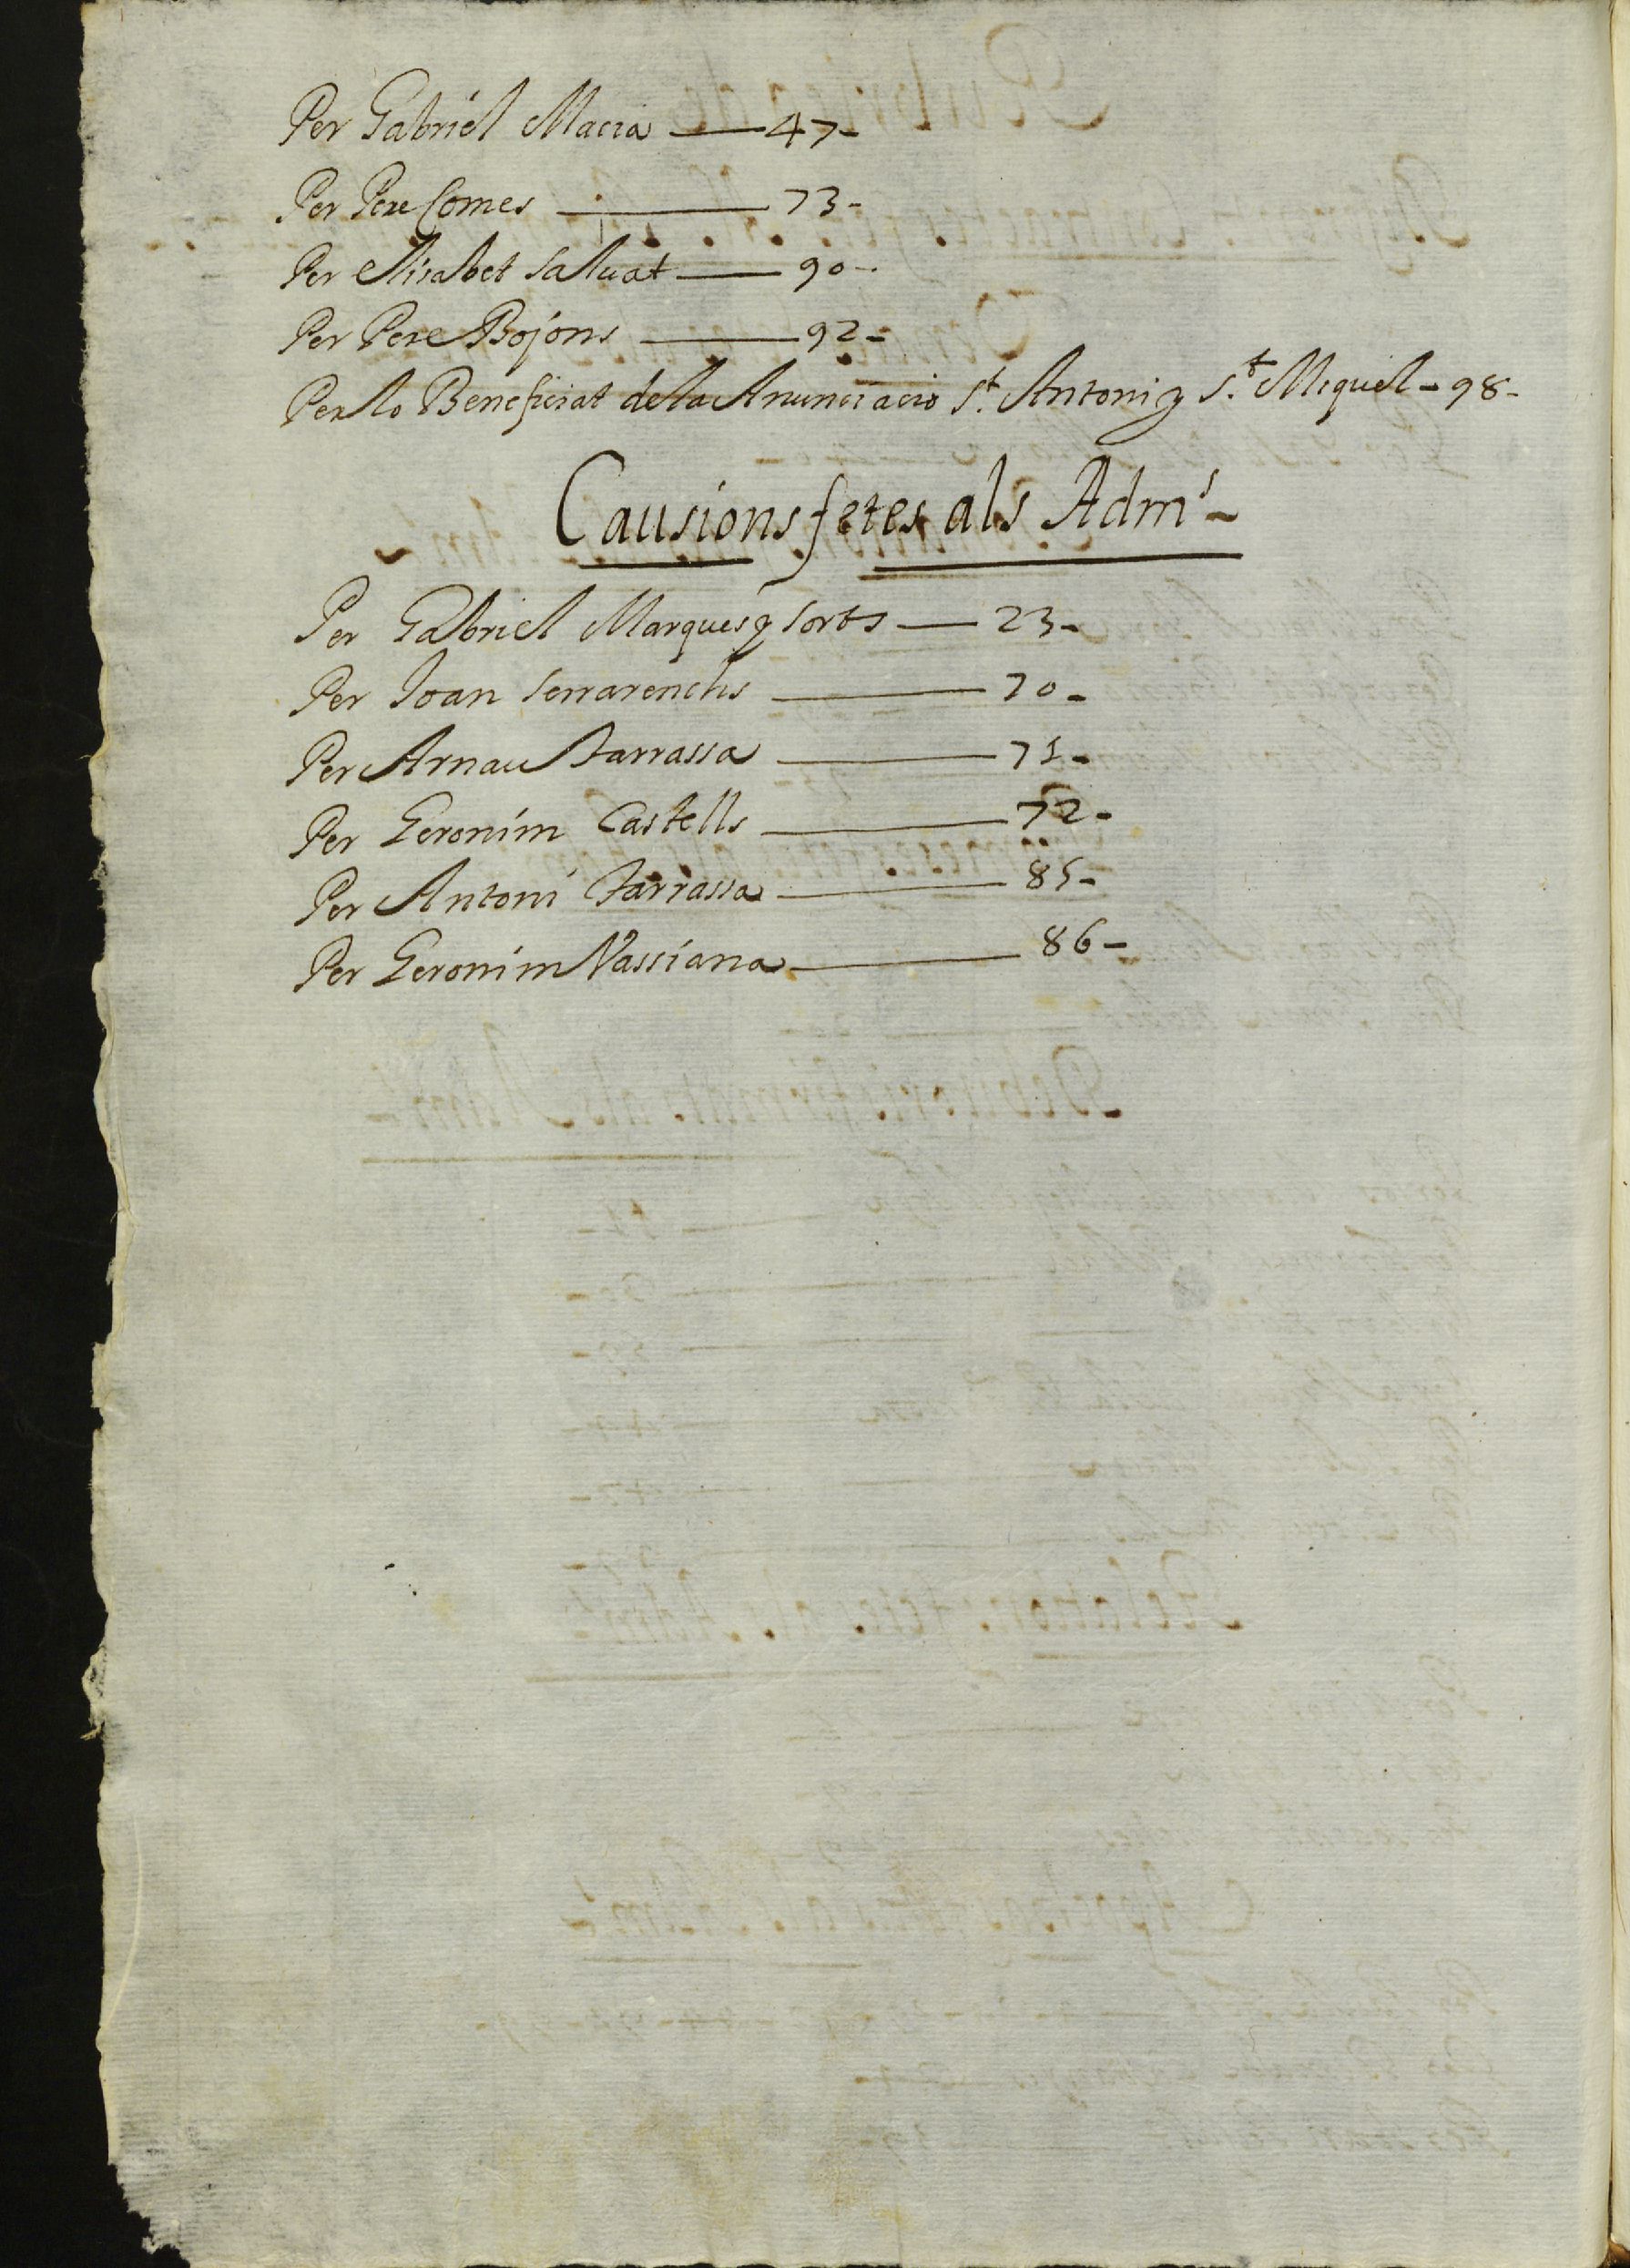 Per Gabriel Macia — 47-
Per Pere Comes — 73-
Per Elisabet Saluat — 90-
Per Pere Bojons — 92-
Per lo Beneficiat de la Anunciacio St. Antoni y St. Miquel - 98-
Causions fetes als Adms-
Per Gabriel Marques y Sorts — 23-
Per Joan Serrarenchs — 70-
Per Arnau Tarrassa — 71-
Per Geronim Castells — 72-
Per Antoni Tarrassa — 85-
Per Geronim Vassiana — 86-